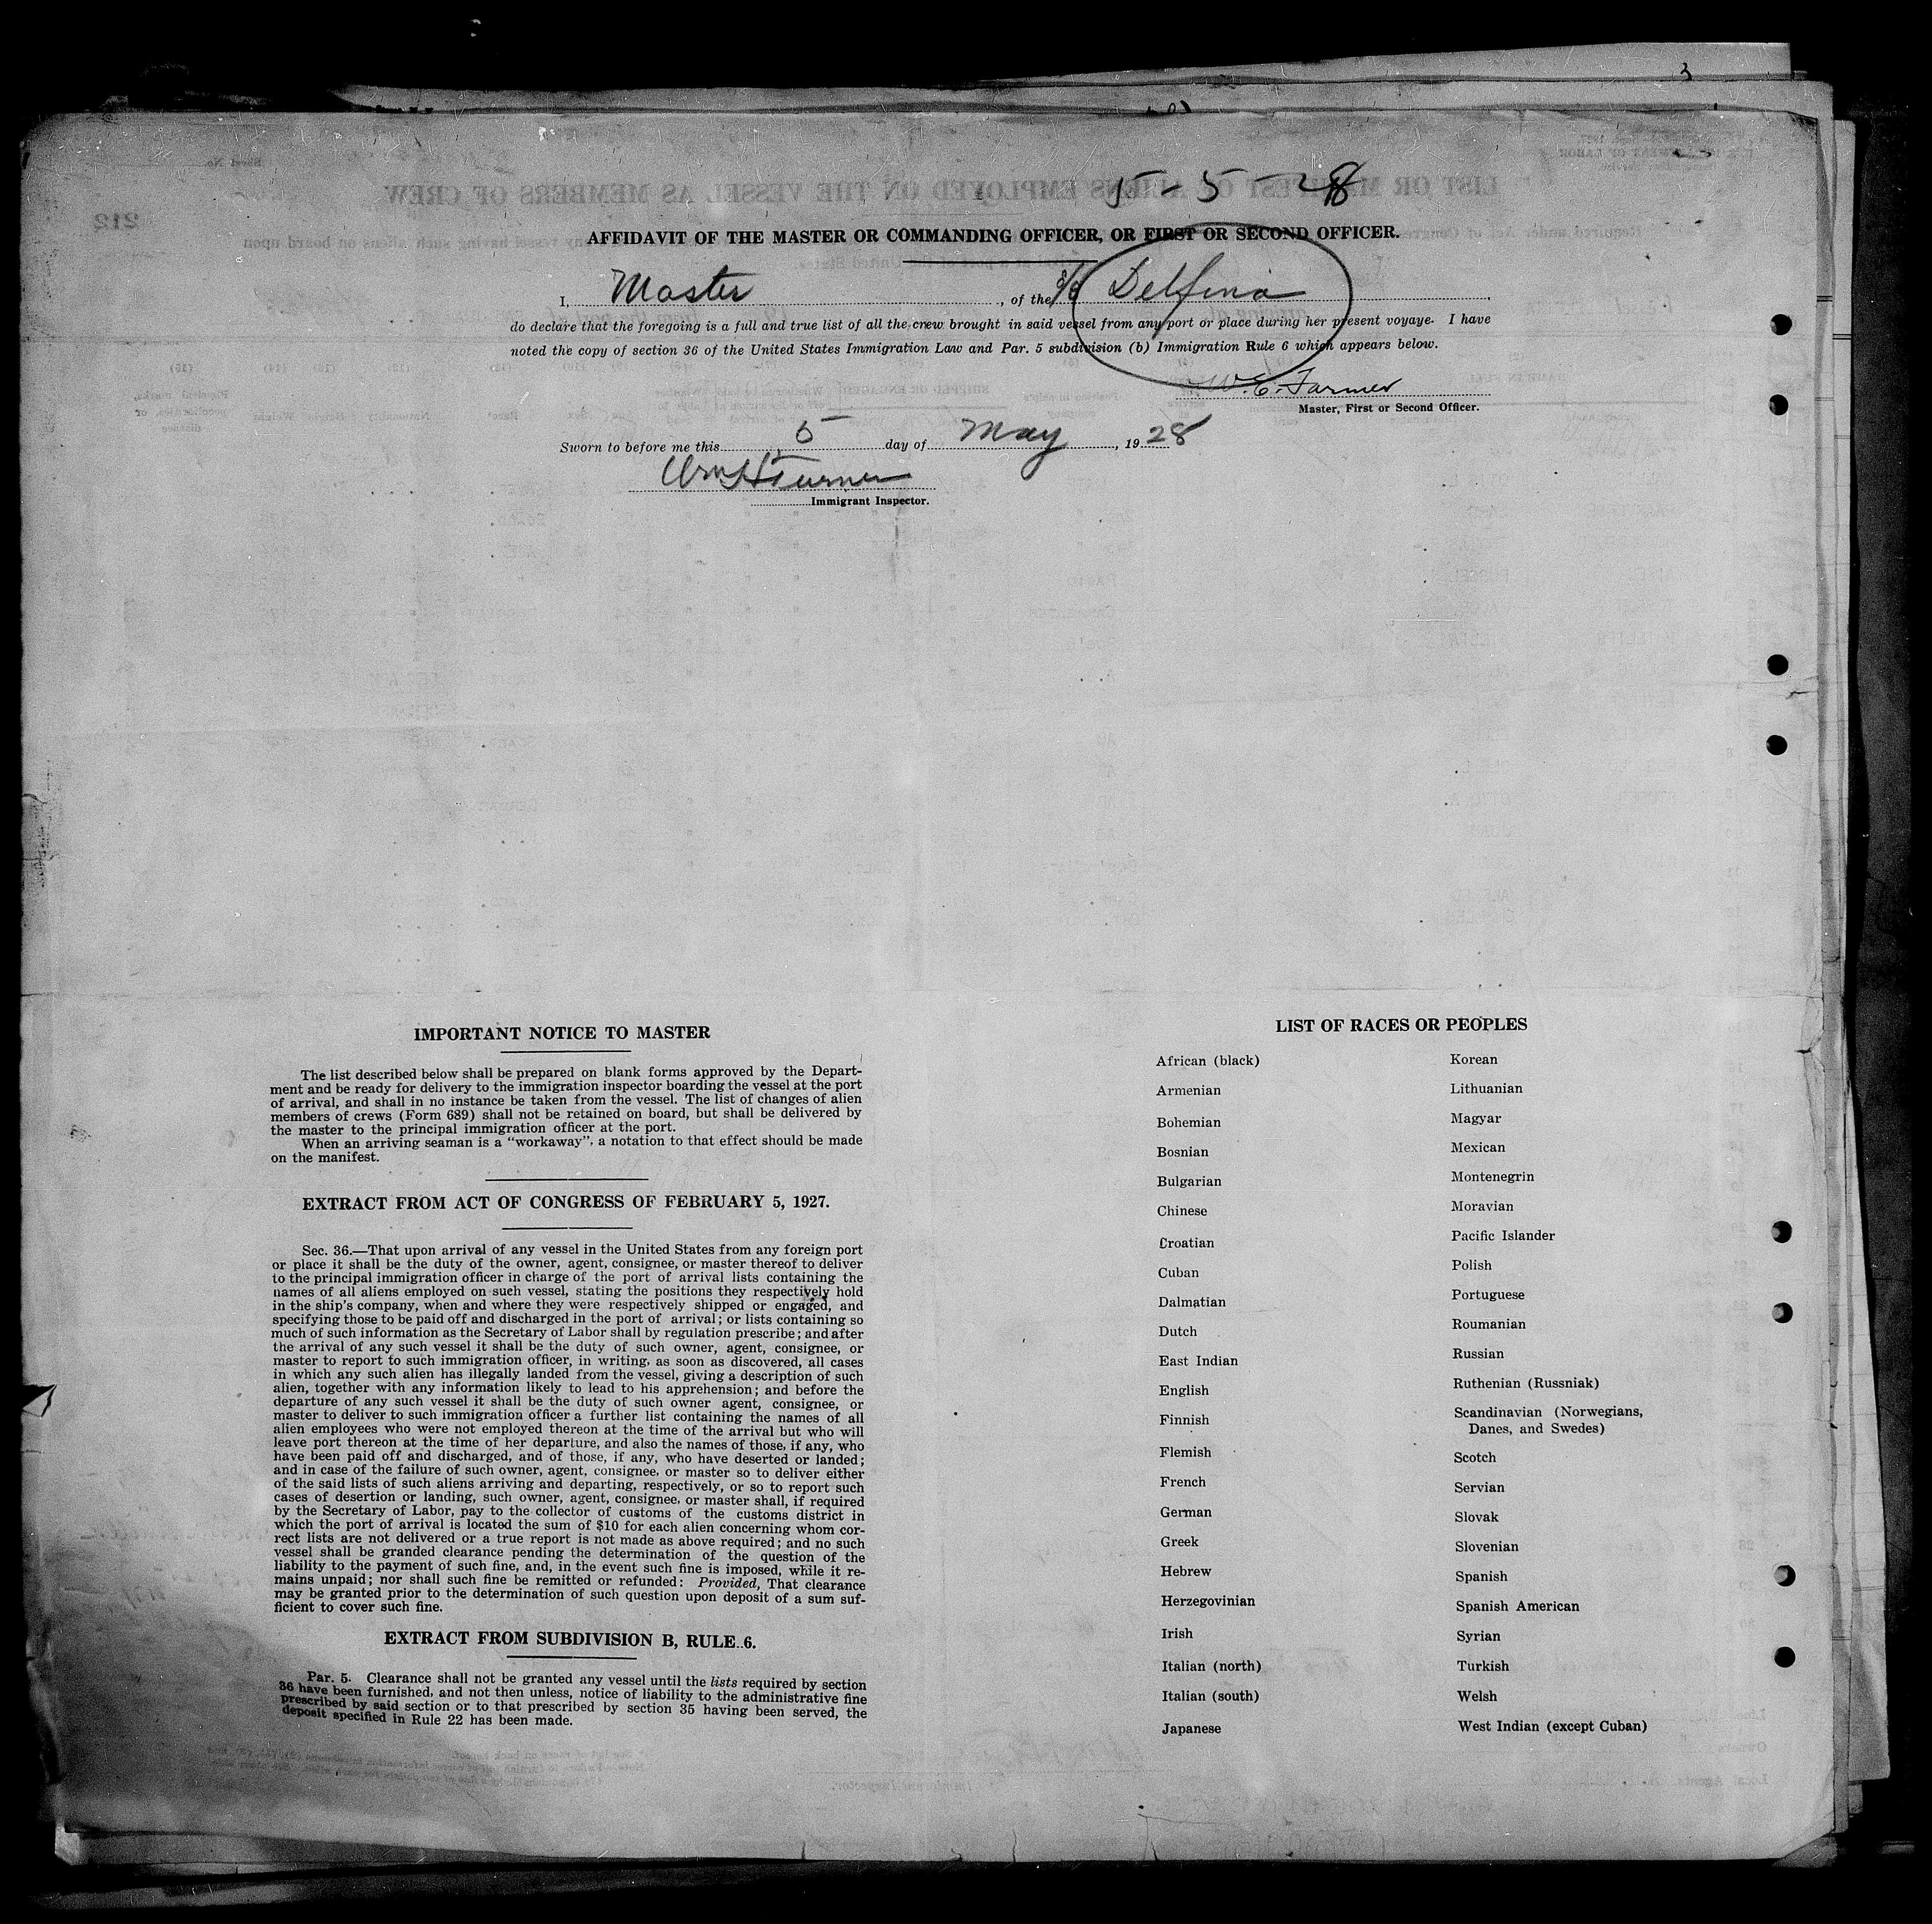 5-5-28
AFFIDAVIT OF THE MASTER OR COMMANDING OFFICER, OR FIRST OR SECOND OFFICER.
I, Master, of the S/S Delfina
do declare that the foregoing is a full and true list of all the crew brought in said vessel from any port or place during her present voyaye. I have
noted the copy of section 36 of the United States Immigration Law and Par. 5 subdivision (b) Immigration Rule 6 which appears below.
W. E. Farmer
Master, First or Second Officer.
Sworn to before me this 5 day of May, 1928
Wm H Turner
Immigrant Inspector.
IMPORTANT NOTICE TO MASTER
The list described below shall be prepared on blank forms approved by the Depart-
ment and be ready for delivery to the immigration inspector boarding the vessel at the port
of arrival, and shall in no instance be taken from the vessel. The list of changes of alien
members of crews (Form 689) shall not be retained on board, but shall be delivered by
the master to the principal immigration officer at the port.
When an arriving seaman is a "workaway", a notation to that effect should be made
on the manifest.
EXTRACT FROM ACT OF CONGRESS OF FEBRUARY 5, 1927.
Sec. 36.—That upon arrival of any vessel in the United States from any foreign port
or place it shall be the duty of the owner, agent, consignee, or master thereof to deliver
to the principal immigration officer in charge of the port of arrival lists containing the
names of all aliens employed on such vessel, stating the positions they respectively hold
in the ship's company, when and where they were respectively shipped or engaged, and
specifying those to be paid off and discharged in the port of arrival; or lists containing so
much of such information as the Secretary of Labor shall by regulation prescribe; and after
the arrival of any such vessel it shall be the duty of such owner, agent, consignee, or
master to report to such immigration officer, in writing, as soon as discovered, all cases
in which any such alien has illegally landed from the vessel, giving a description of such
alien, together with any information likely to lead to his apprehension; and before the
departure of any such vessel it shall be the duty of such owner agent, consignee, or
master to deliver to such immigration officer a further list containing the names of all
alien employees who were not employed thereon at the time of the arrival but who will
leave port thereon at the time of her departure, and also the names of those, if any, who
have been paid off and discharged, and of those, if any, who have deserted or landed;
and in case of the failure of such owner, agent, consignee, or master so to deliver either
of the said lists of such aliens arriving and departing, respectively, or so to report such
cases of desertion or landing, such owner, agent, consignee, or master shall, if required
by the Secretary of Labor, pay to the collector of customs of the customs district in
which the port of arrival is located the sum of $10 for each alien concerning whom cor-
rect lists are not delivered or a true report is not made as above required; and no such
vessel shall be granted clearance pending the determination of the question of the
liability to the payment of such fine, and, in the event such fine is imposed, while it re-
mains unpaid; nor shall such fine be remitted or refunded: Provided, That clearance
may be granted prior to the determination of such question upon deposit of a sum suf-
ficient to cover such fine.
EXTRACT FROM SUBDIVISION B, RULE 6.
Par. 5. Clearance shall not be granted any vessel until the lists required by section
36 have been furnished, and not then unless, notice of liability to the administrative fine
prescribed by said section or to that prescribed by section 35 having been served, the
deposit specified in Rule 22 has been made.
LIST OF RACES OR PEOPLES
African (black)
Armenian
Bohemian
Bosnian
Bulgarian
Chinese
Croatian
Cuban
Dalmatian
Dutch
East Indian
English
Finnish
Flemish
French
German
Greek
Hebrew
Herzegovinian
Irish
Italian (north)
Italian (south)
Japanese
Korean
Lithuanian
Magyar
Mexican
Montenegrin
Moravian
Pacific Islander
Polish
Portuguese
Roumanian
Russian
Ruthenian (Russniak)
Scandinavian (Norwegians,
Danes, and Swedes)
Scotch
Servian
Slovak
Slovenian
Spanish
Spanish American
Syrian
Turkish
Welsh
West Indian (except Cuban)